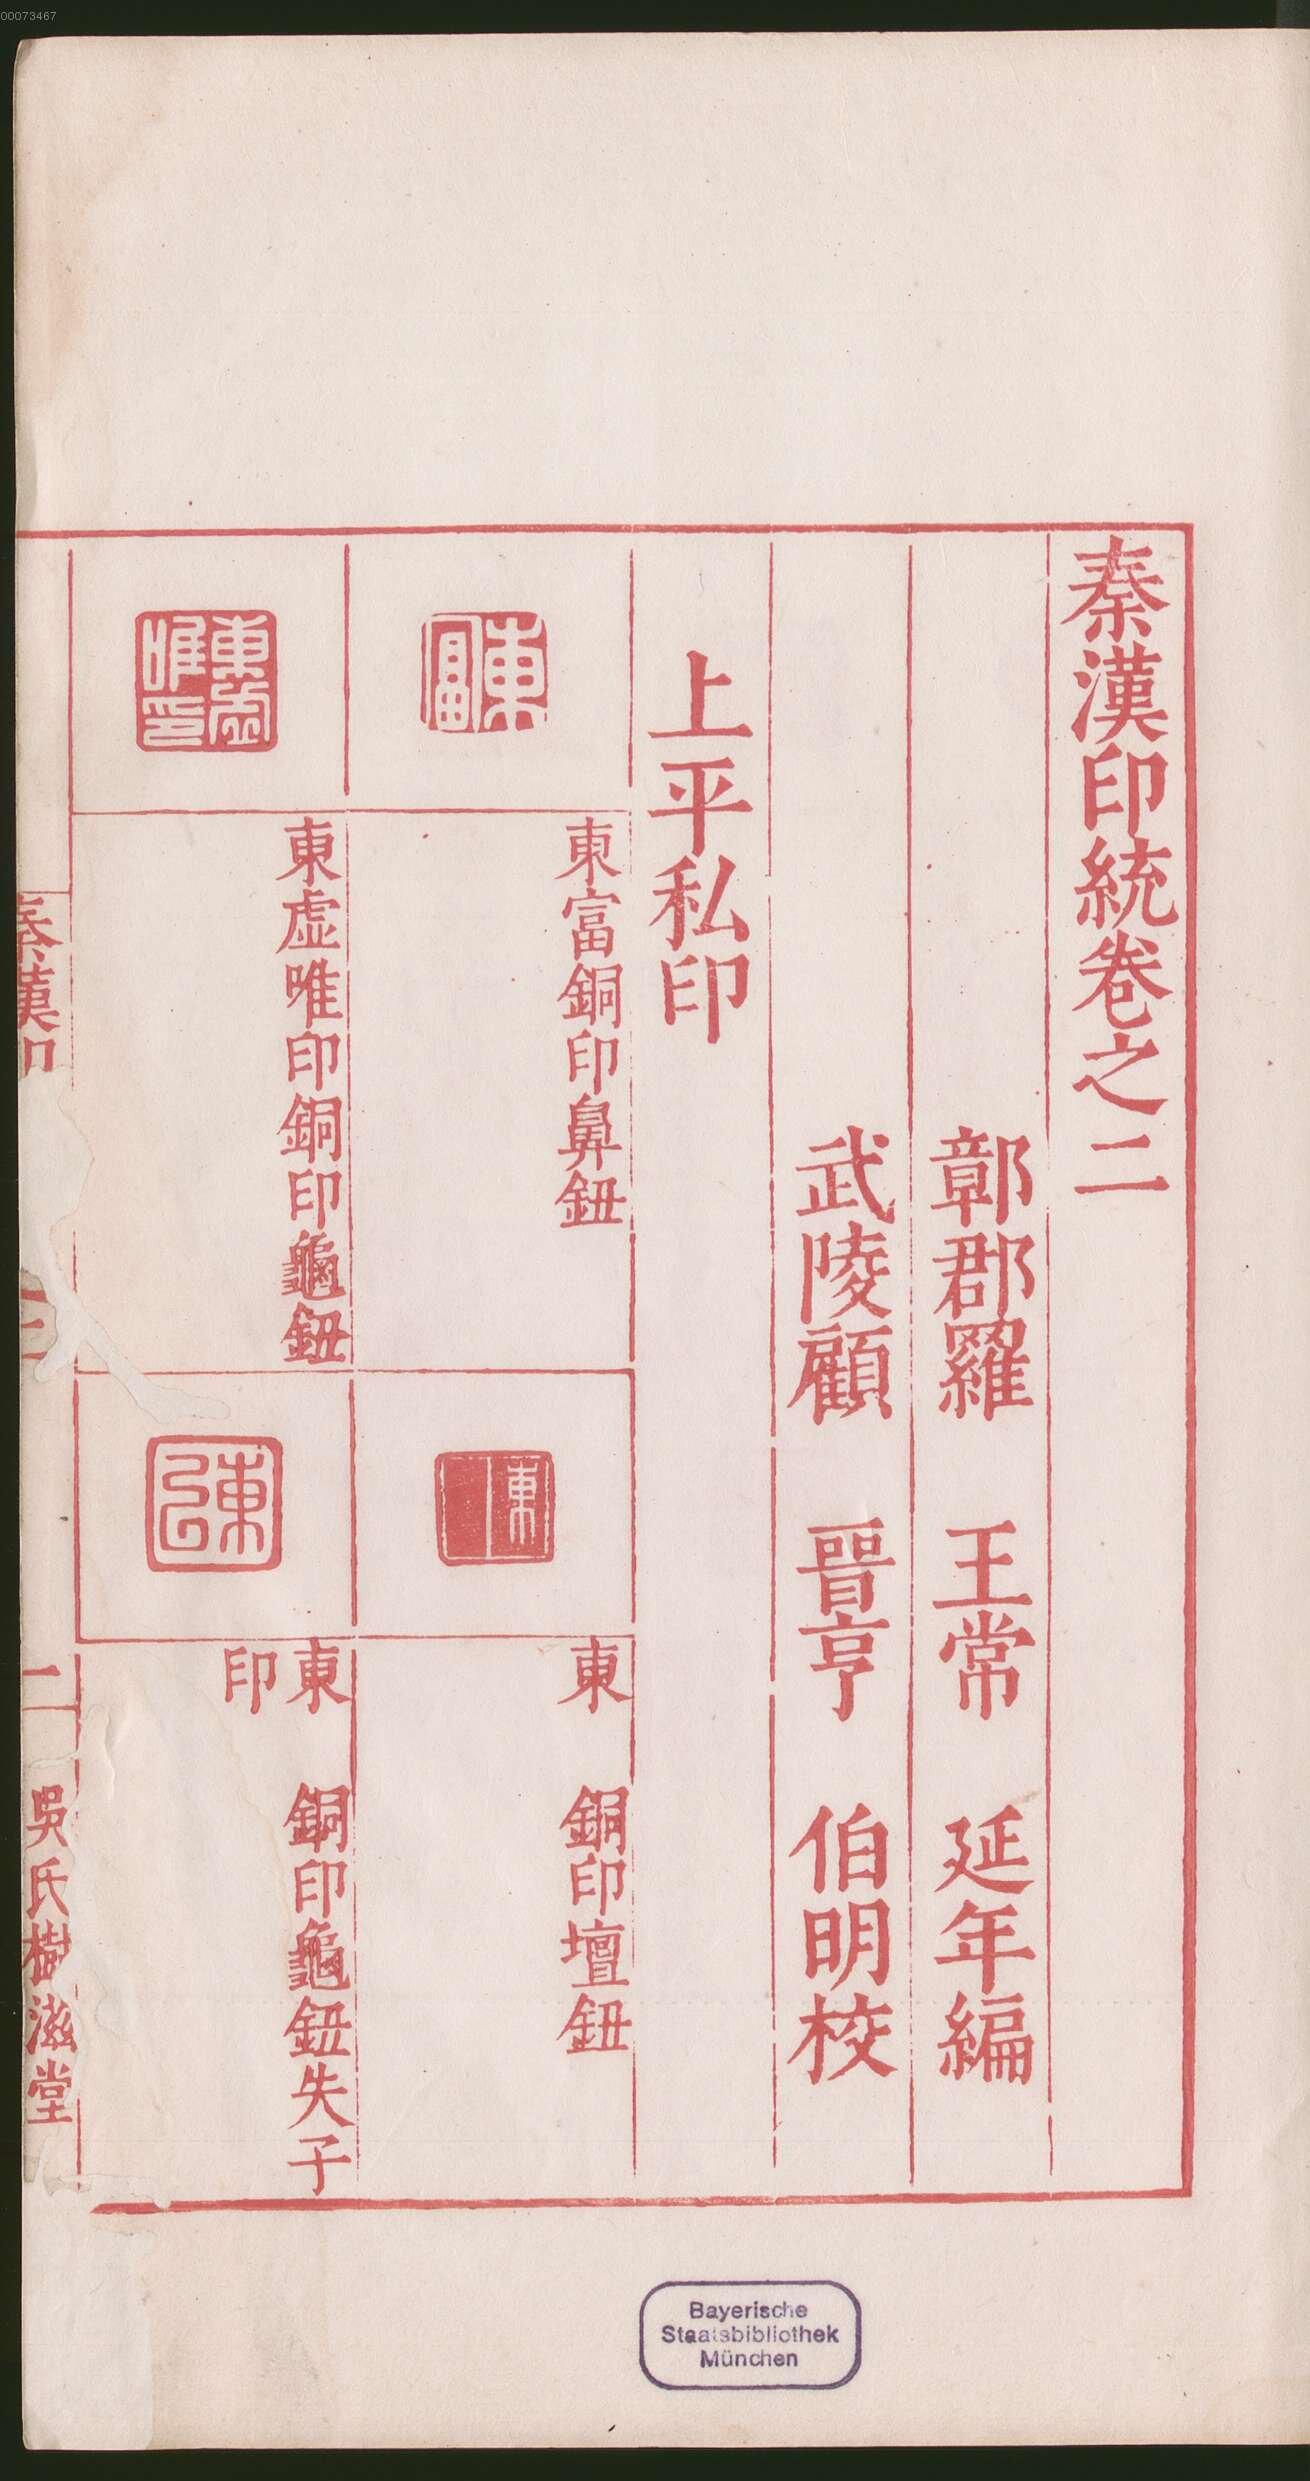 00073467
秦漢印統卷之二
鄣郡羅　王常　延年編
武陵顧　晉亨　伯明校
上平私印
東富
東富銅印鼻鈕
東
東　銅印壇鈕
東虛唯印
東虛唯印銅印龜鈕
東　銅印龜鈕失子
印
秦漢印
二
吳氏樹滋堂
Bayerische
Staatsbibliothek
München